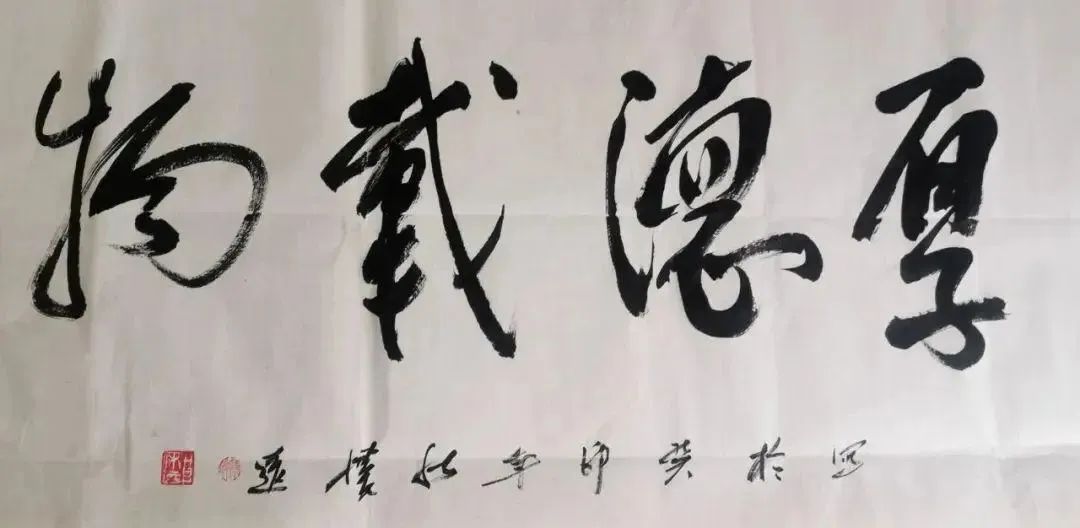 厚德載物
写於癸卯年秋